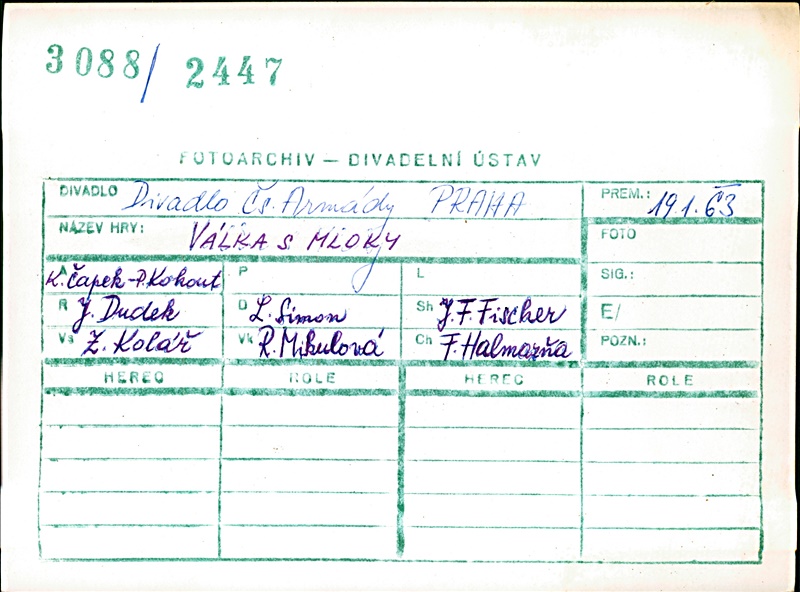 3088/ 2447
FOTOARCHIV – DIVADELNÍ ÚSTAV
DIVADLO Divadlo Čs. Armády PRAHA PREM.: 19.1.63
NÁZEV HRY: VÁLKA S MLOKY FOTO
A K. Čapek - P. Kohout P L SIG.:
R J. Dudek D L. Simon Sh J. F. Fischer E/
Vs Z. Kolář Vk R. Mikulová Ch F. Halmazňa POZN.:
HEREC ROLE HEREC ROLE